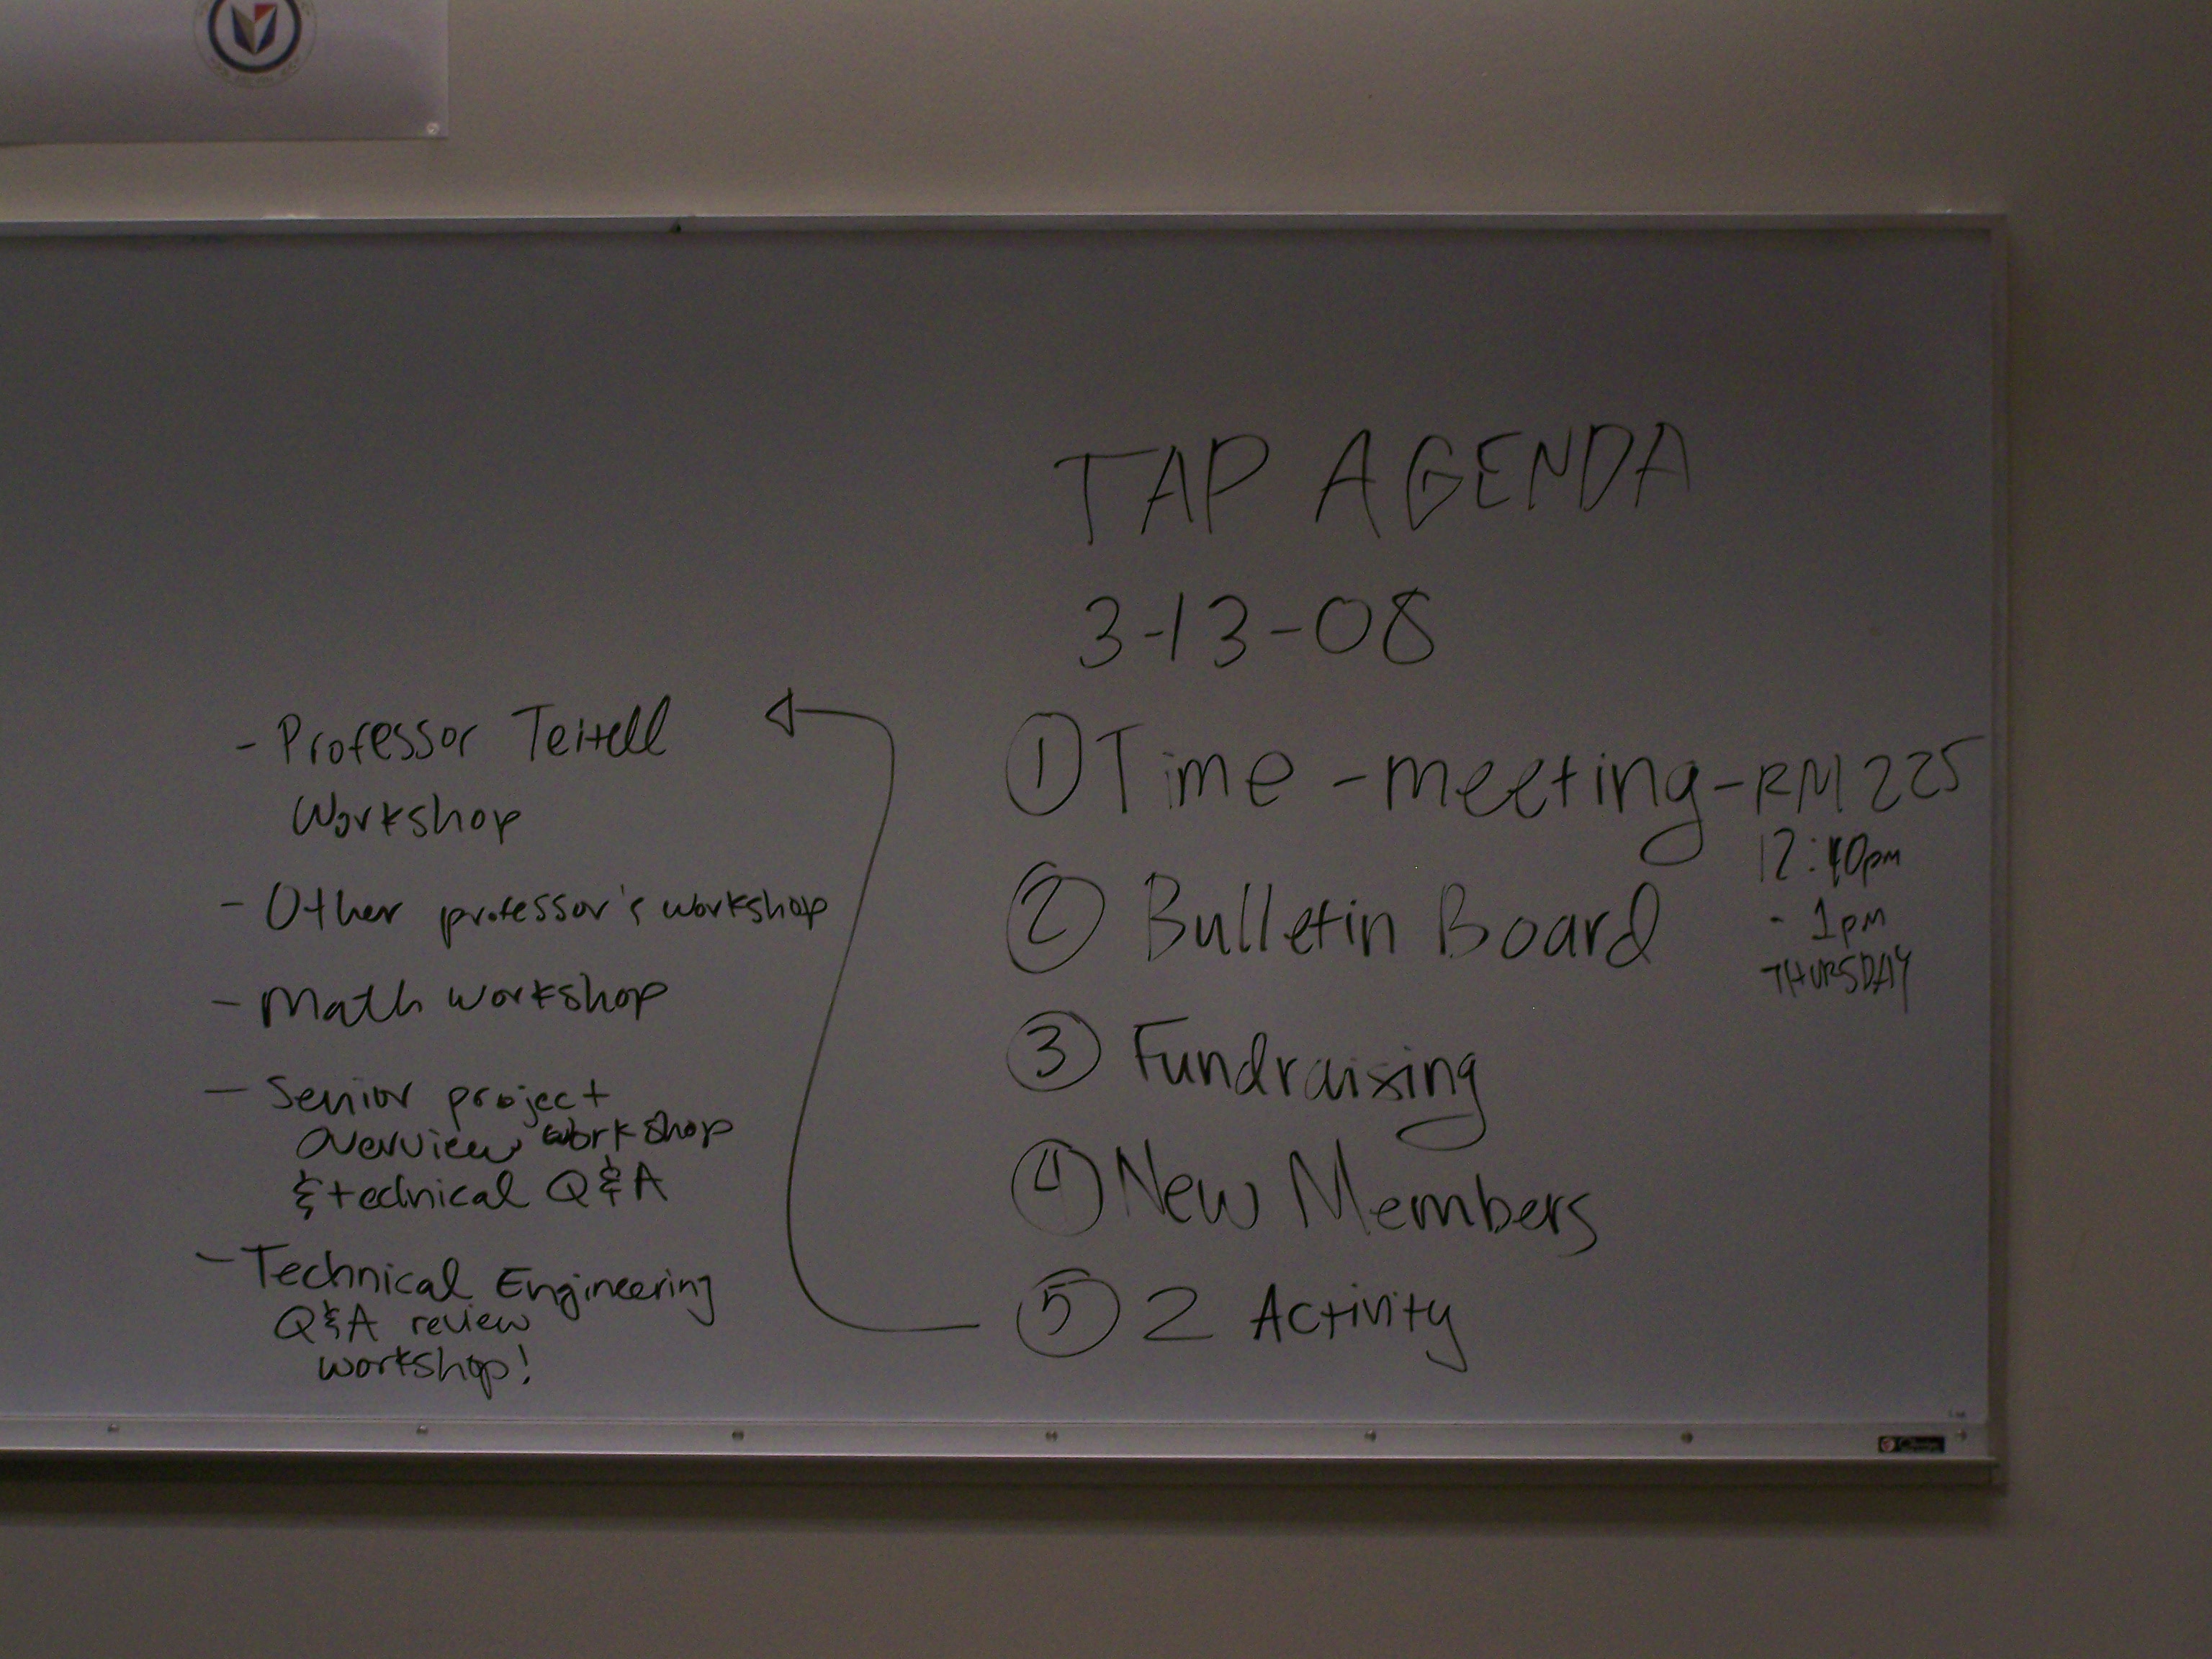 TAP AGENDA
3-13-08
① Time - meeting - RM 225
12:40pm
- 1pm
THURSDAY
② Bulletin Board
③ Fundraising
④ New Members
⑤ 2 Activity
- Professor Teitell
Workshop
- Other professor's workshop
- Math workshop
- Senior project
Overview workshop
& technical Q&A
- Technical Engineering
Q&A review
workshop!